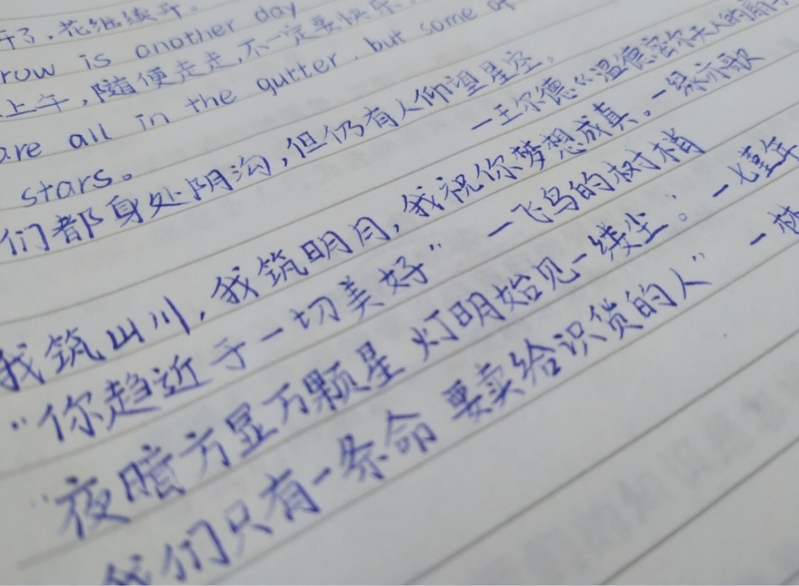 开了，花继续开。
row is another day
上午，随便走走，不一定要快乐，
are all in the gutter, but some of
stars。
们都身处阴沟，但仍有人仰望星空。
—王尔德《温德密尔夫人的扇子
我筑山川，我筑明月，我祝你梦想成真。—绿亦歌
“你趋近于一切美好” —飞鸟的树梢
“夜暗方显万颗星 灯明始见一缕尘。—七堇年
我们只有一条命 要卖给识货的人” —